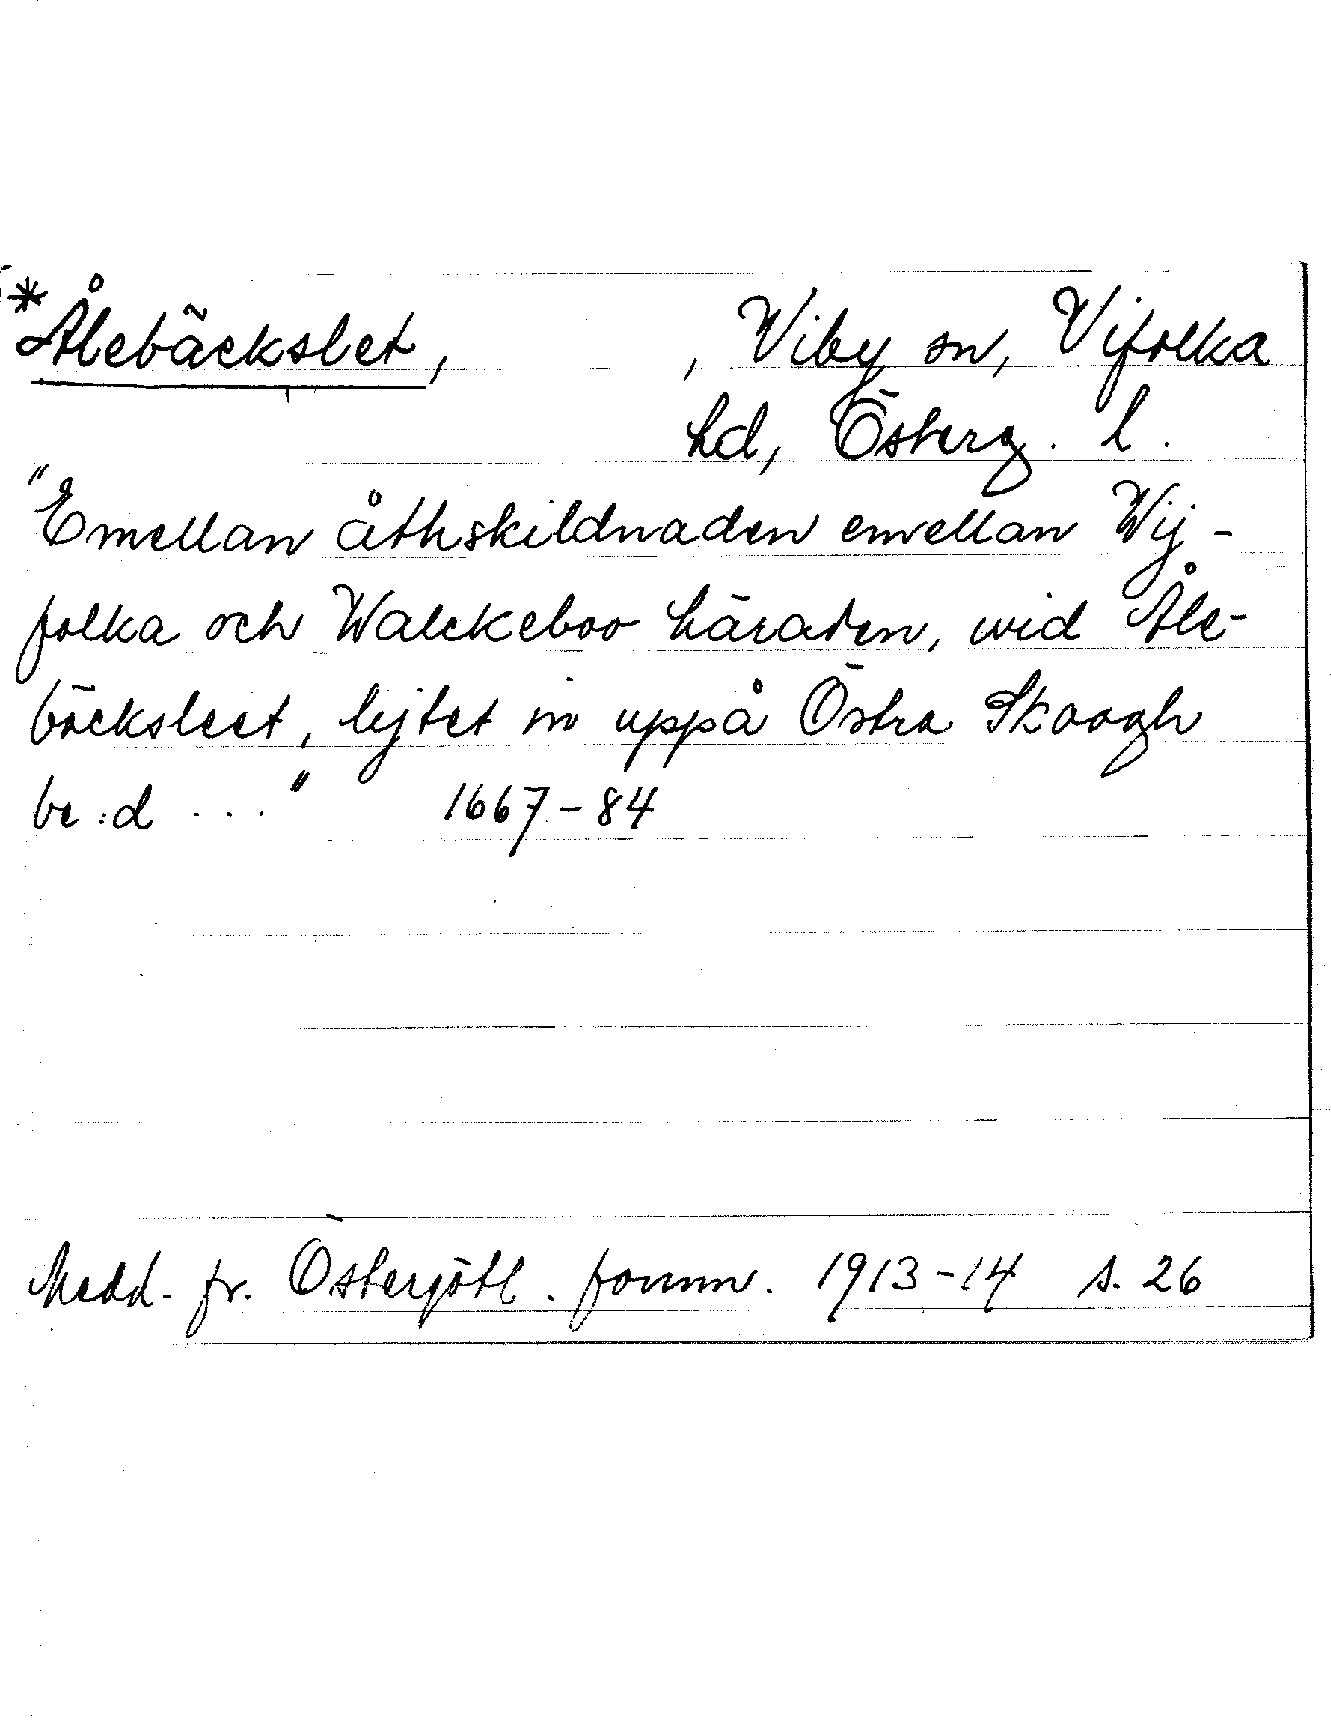 *Ålebäckslet, , Viby sn, Vifolka
hd, Österg. l.
"Emellan åthskildnaden emellan Wij-
folka och Walckeboo häraden, wid Åle-
bäcksleet, lijtet in uppå Östra Skoogh
be:d ..." 1667-84
Medd. fr. Östergötl. fornm. 1913-14 s. 26